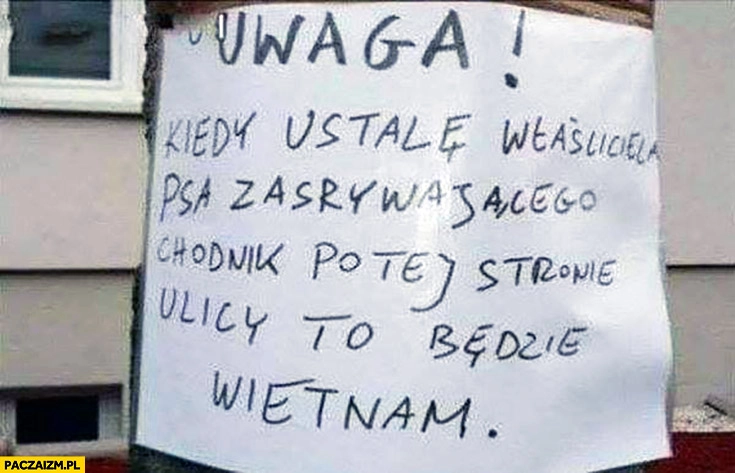 UWAGA!
KIEDY USTALĘ WŁAŚCICIELA
PSA ZASRYWAJĄCEGO
CHODNIK PO TEJ STRONIE
ULICY TO BĘDZIE
WIETNAM.
PACZAIZM.PL